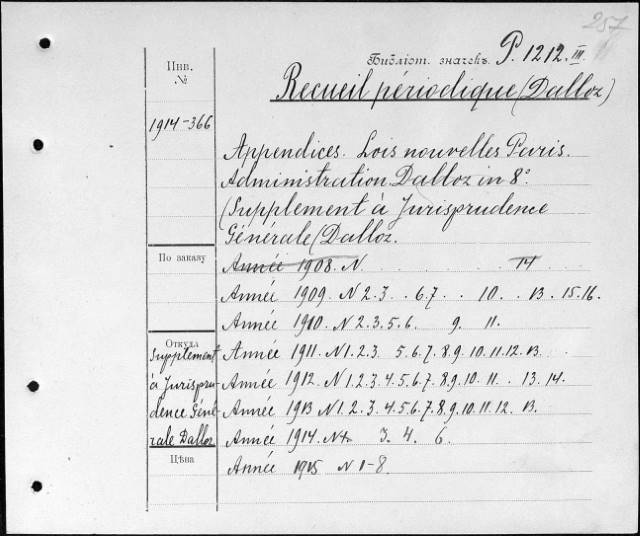 257
Инв.
№
Библіот. значекъ. P. 1212. III.
Recueil périodique (Dalloz)
1914-366
Appendices. Lois nouvelles Paris.
Administration Dalloz in 8°
(Supplement à Jurisprudence
Générale (Dalloz.
По заказу
Année 1908. N 14
Année 1909. N 2. 3. 6. 7. 10. 13. 15. 16.
Année 1910. N 2. 3. 5. 6. 9. 11.
Откуда
Supplement
à Jurispru-
dence Géné-
rale Dalloz
Année 1911. N 1. 2. 3. 5. 6. 7. 8. 9. 10. 11. 12. 13.
Année 1912. N 1. 2. 3. 4. 5. 6. 7. 8. 9. 10. 11. 13. 14.
Année 1913 N 1. 2. 3. 4. 5. 6. 7. 8. 9. 10. 11. 12. 13.
Année 1914. N 3. 4. 6.
Цѣна
Année 1915 N 1-8